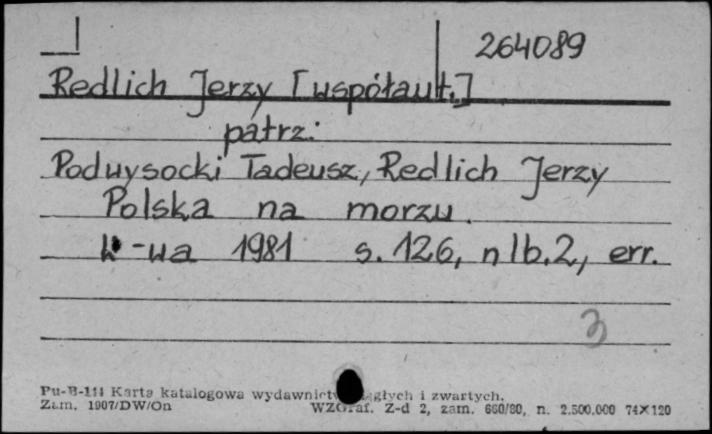 264089
Redlich Jerzy [współaut.]
patrz:
Podwysocki Tadeusz, Redlich Jerzy
Polska na morzu.
W-wa 1981 s. 126, nlb. 2, err.
3
Pu-B-111 Karta katalogowa wydawnictw ciągłych i zwartych.
Zam. 1907/DW/On WZGraf. Z-d 2, zam. 660/80, n. 2.500.000 74×120